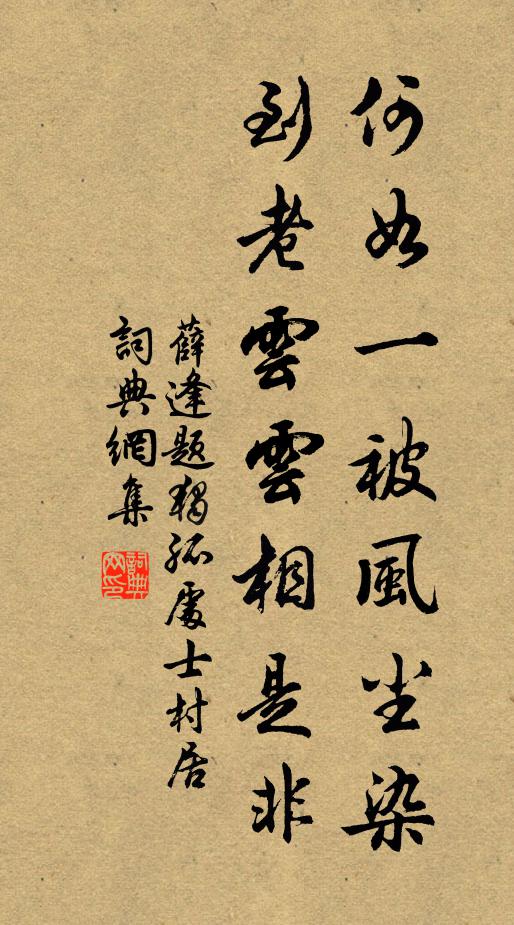 何如一被風尘染
到老雲雲相是非
薛逢題獨孤處士村居
詞典網集
詞典網印